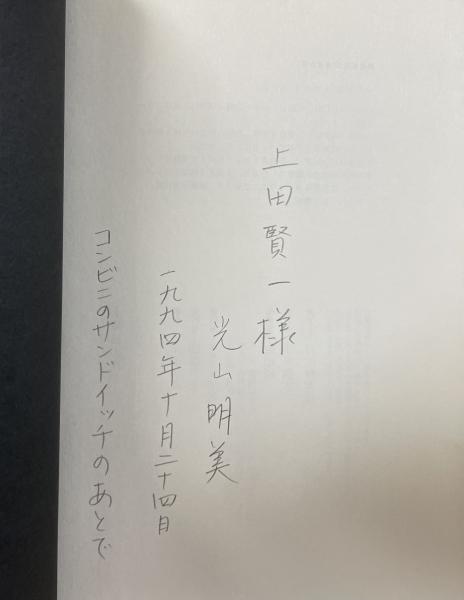 上田賢一様
光山明美
一九九四年十月二十四日
コンビニのサンドイッチのあとで